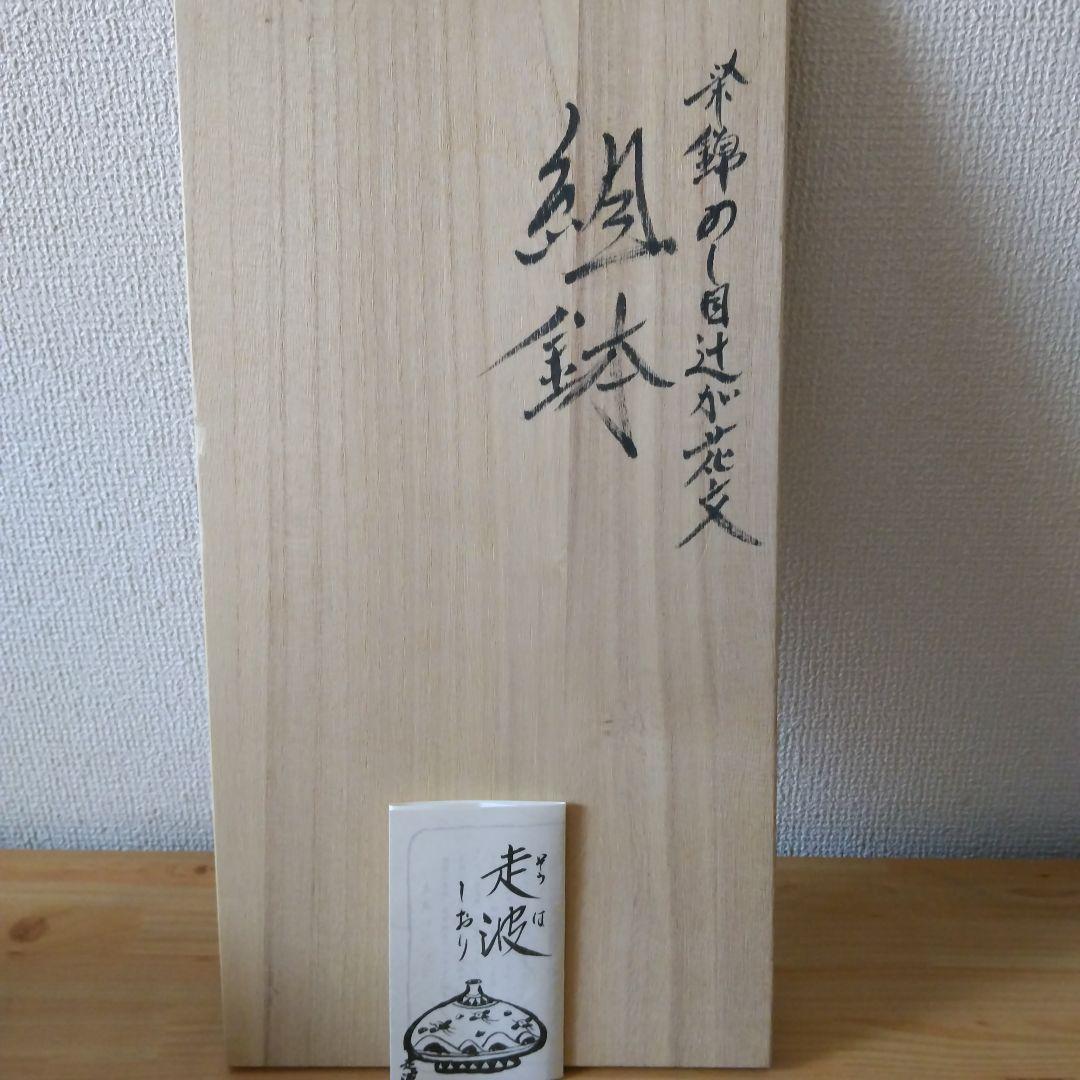 染錦のし目辻が花文
組鉢
そうは
走波
しおり